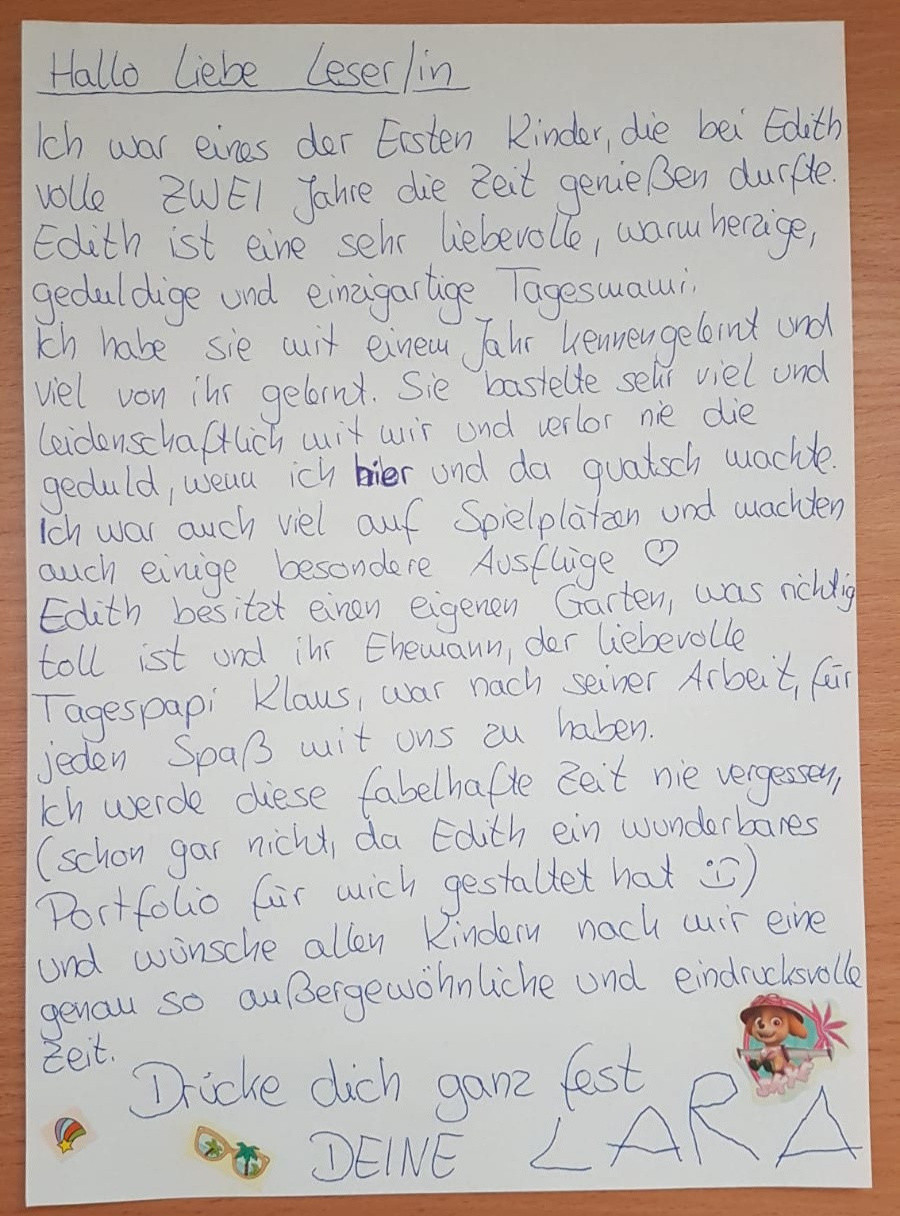 Hallo Liebe Leser/in
Ich war eines der Ersten Kinder, die bei Edith
volle ZWEI Jahre die Zeit genießen durfte.
Edith ist eine sehr liebevolle, warmherzige,
geduldige und einzigartige Tagesmami.
Ich habe sie mit einem Jahr kennengelernt und
viel von ihr gelernt. Sie bastelte sehr viel und
leidenschaftlich mit mir und verlor nie die
geduld, wenn ich hier und da quatsch machte.
Ich war auch viel auf Spielplätzen und machten
auch einige besondere Ausflüge ♡
Edith besitzt einen eigenen Garten, was richtig
toll ist und ihr Ehemann, der liebevolle
Tagespapi Klaus, war nach seiner Arbeit, für
jeden Spaß mit uns zu haben.
Ich werde diese fabelhafte Zeit nie vergessen,
(schon gar nicht, da Edith ein wunderbares
Portfolio für mich gestaltet hat :))
und wünsche allen Kindern nach mir eine
genau so außergewöhnliche und eindrucksvolle
Zeit.
Drücke dich ganz fest
DEINE LARA